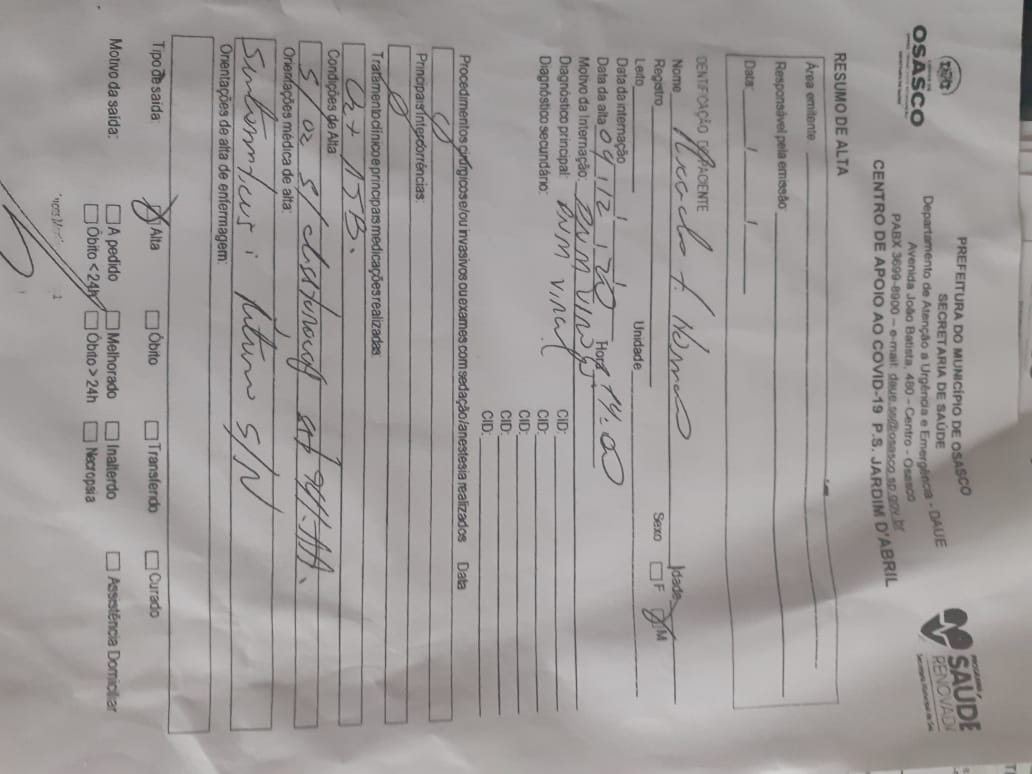 PREFEITURA DO MUNICÍPIO DE OSASCO
SECRETARIA DE SAÚDE
Departamento de Atenção a Urgência e Emergência - DAUE
Avenida João Batista, 480 – Centro - Osasco
PABX 3699-8900 – e-mail: daue.ss@osasco.sp.gov.br
CENTRO DE APOIO AO COVID-19 P.S. JARDIM D'ABRIL
OSASCO
SAÚDE
RENOVADA
RESUMO DE ALTA
Área emitente
Responsável pela emissão:
Data: / /
IDENTIFICAÇÃO DO PACIENTE
Nome Idade
Registro Sexo F M
Leito Unidade
Data da internação
Data da alta 04/12/20 Hora 14:00
Motivo da Internação: PNM viral
Diagnóstico principal: PNM viral CID:
Diagnóstico secundário: CID:
CID:
CID:
CID:
Procedimentos cirúrgicos e/ou invasivos ou exames com sedação/anestesia realizados Data
Principais Intercorrências:
Tratamento clínico e principais medicações realizadas
ATB.
Condições de Alta
S/O2 S/
Orientações médica de alta:
Sintomáticos; Retorno S/N
Orientações de alta de enfermagem:
Tipo de saída: Alta Óbito Transferido Curado
Motivo da saída: A pedido Melhorado Inalterdo Assistência Domiciliar
Óbito < 24h Óbito > 24h Necropsia